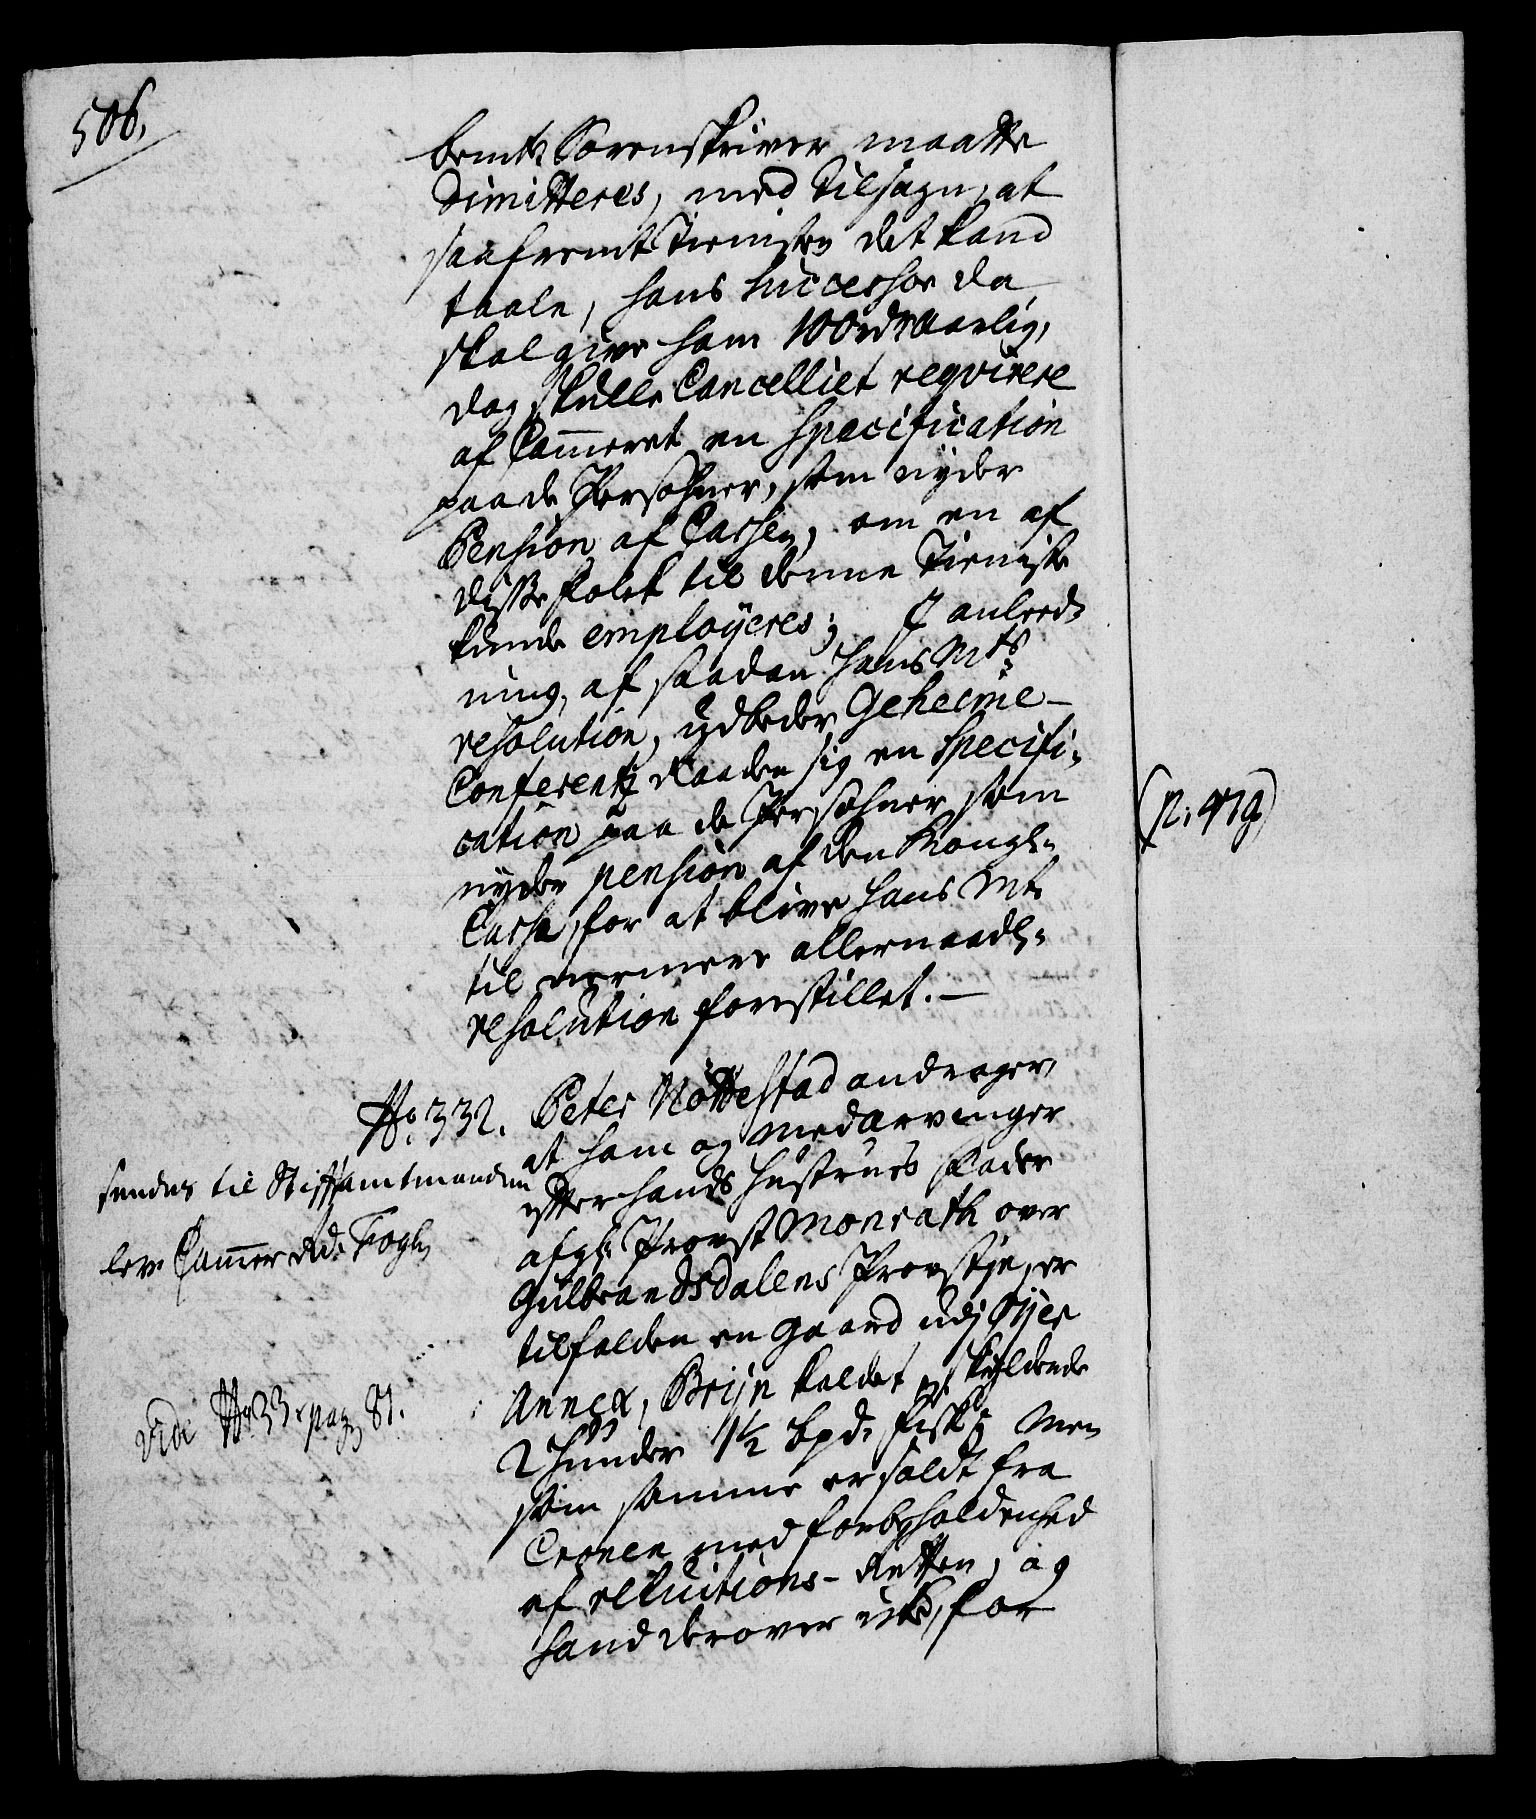 506.
bemte Sorenskriver maatte
Dimitteres, med tilsagn, at
saafremt tienisten det kand
taale, hans Successor da
skal give ham 100 rdr aarlig,
dog skulle Cancelliet reqvirere
af Cammeret en Specification
paa de Persohner, som nyder
Pension af Cassen, om en af
disse folk til denne tieniste
kunde employeres; J anleed-
ning af saadan Hans Mts
resolution, udbeder Geheeme-
Conferentz Raaden sig en Specifi-
cation paa de Persohner som
nyder pension af den Kongl.
Cassa, for at blive Hans Mt.
til nermere allernaadl.
resolution forestillet. —
(p. 479)
No. 332. Peter Nöttestad andrager,
at ham og medarvinger
efter hands Hustrues Fader
afgl. Provst Monrath over
Gulbrandsdalens Provstie, er
tilfalden en Gaard udj Öyer
Annex, Bryn kaldet, skyldende
2 Hunder 1½ bpd. fisk; Men
som samme er soldt fra
Cronen med forbeholdenhed
af reluitions-Retten, og
hand derover icke, for
sendes til Stiftamtmanden
lev. Cammer Rd. Fogh
vide No 33. pag 81.